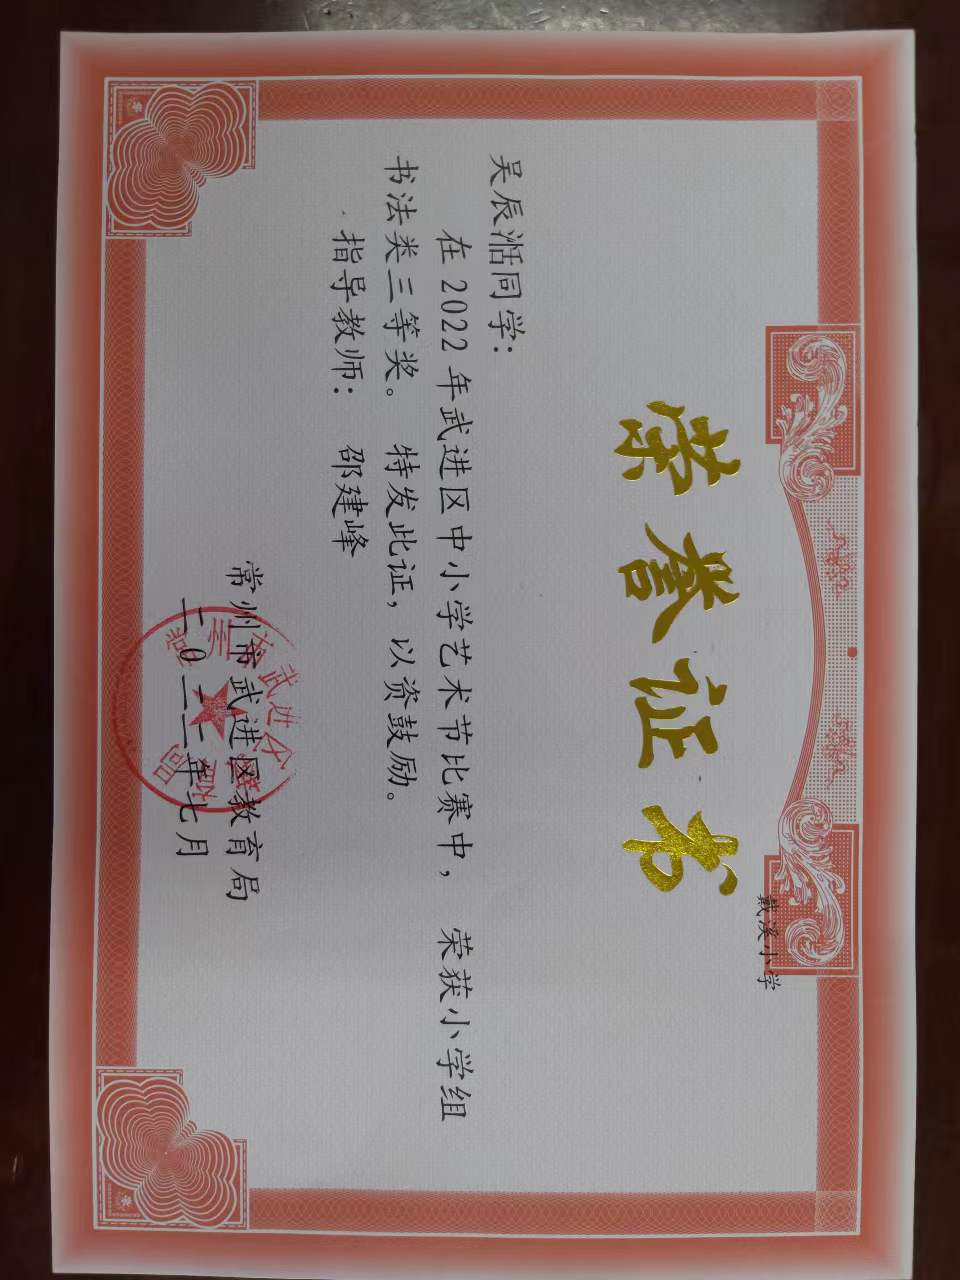 戴溪小学
荣誉证书
吴辰湉同学：
在2022年武进区中小学艺术节比赛中，荣获小学组
书法类三等奖。 特发此证，以资鼓励。
指导教师： 邵建峰
常州市武进区教育局
二〇二二年七月